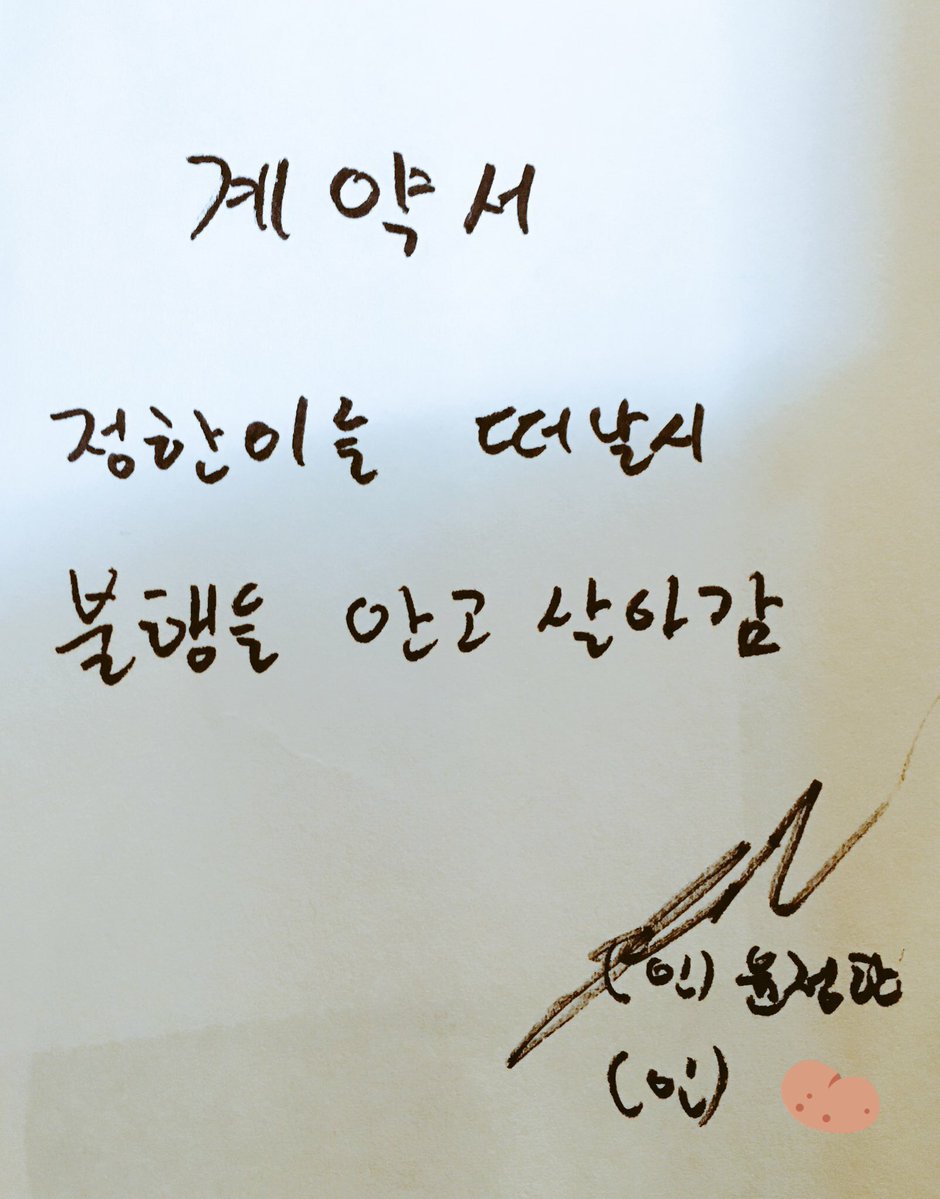 계약서
정한이를 떠날시
불행을 안고 살아감
(인) 윤정한
(인)